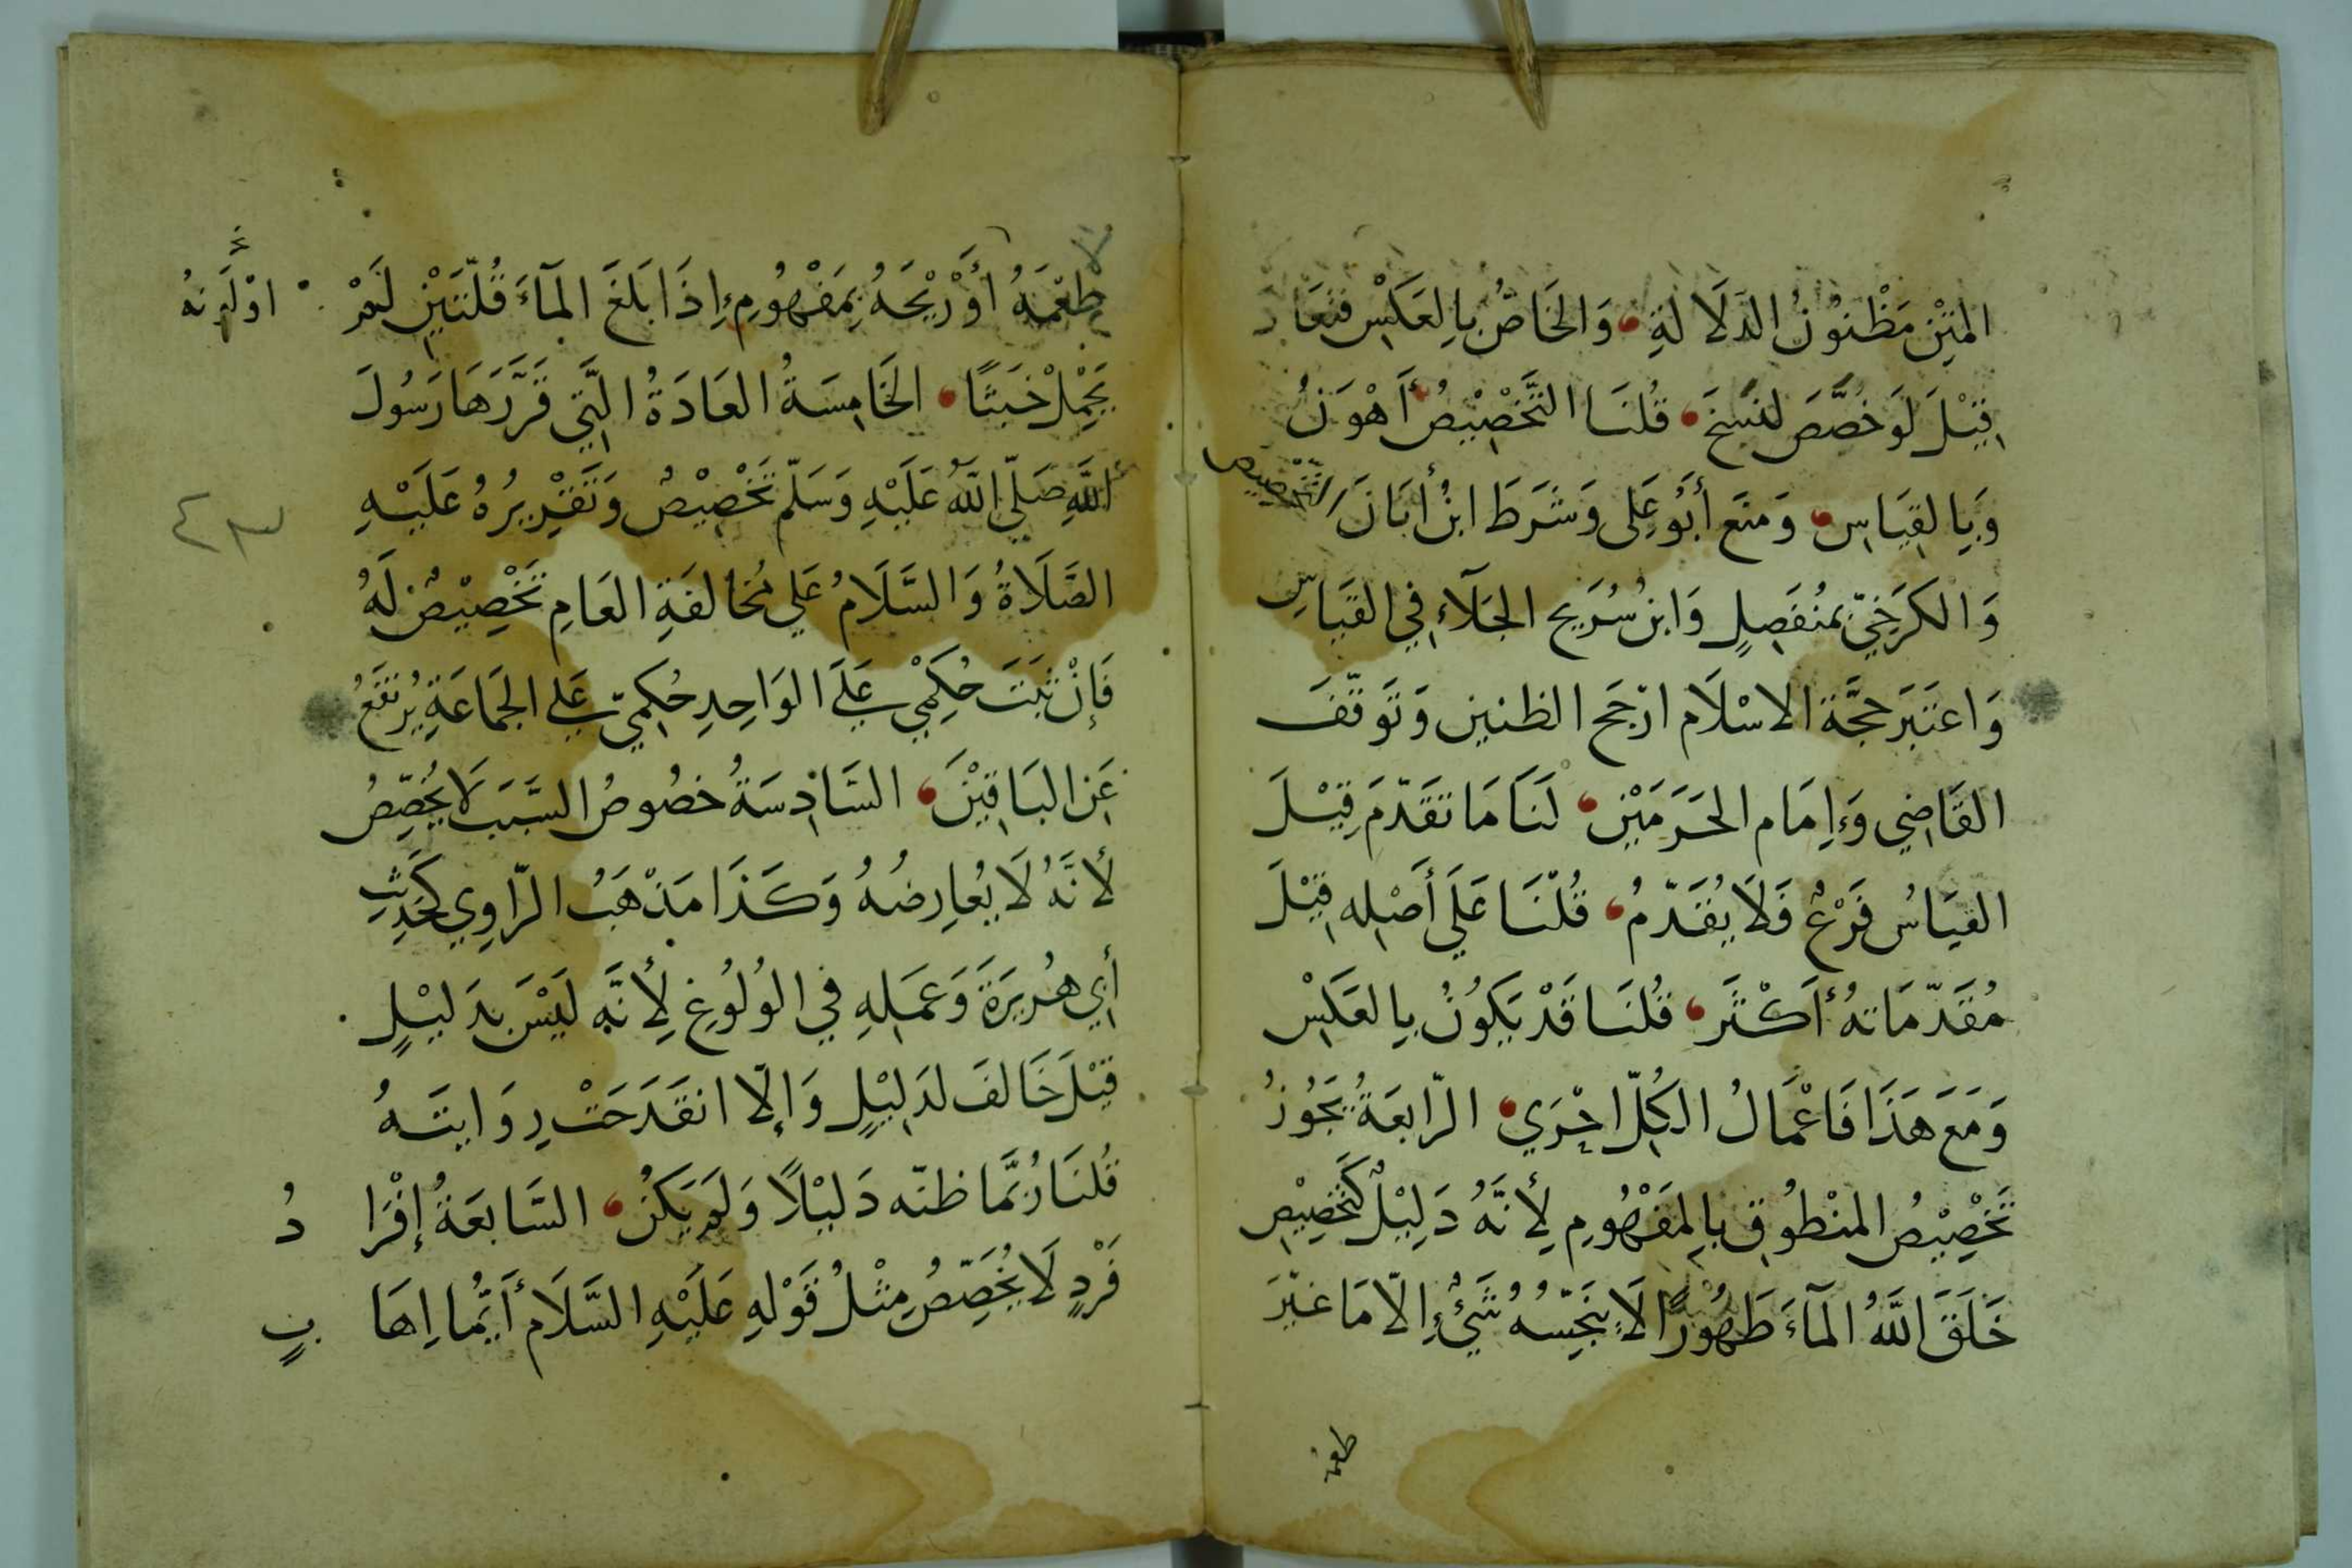 المَتْنِ مَظْنُونُ الدَلَالَةِ وَالخَاصُّ بِالعَكْسِ فَتَعَادَ
قِيْلَ لَوَ خُصِّصَ لَنُسِخَ قُلنَا التَّخْصِيْصُ أَهْوَنُ
وَبِالقِيَاسِ وَمَنَع أَبُو عَلِى وَشَرَطَ ابنُ أَبَانَ التَّخْصِيص
وَالكَرَخِيّ بمُنْفَصِلٍ وَابنُ سُرَيج الجَلَآءِ فِي القيَاسِ
وَاعتَبَرَ حجَّة الاسْلَام ارْجَح الظنين وَتَوَقّفَ
القَاضِي وَإِمَام الحَرَمَيْنِ لَنَا مَا تقَدّمَ قِيْلَ
القيَاسُ فَرْعٌ فَلَا يُقَدّمُ قُلْنَا عَلَي أَصْلِه قِيْلَ
مُقَدّمَاتهُ أَكْثَر قُلنَا قَدْ يَكُونُ بِالعَكْسِ
وَمَعَ هَذَا فَاعْمَالُ الكُلّ احْرَي الرّابعَةُ يَجُوزُ
تَخْصِيْصُ المنْطُوقِ بِالمَفْهُومِ لِأَنَّهُ دَلِيْلٌ كَتَخْصِيْصِ
خَلَقَ اللَّهُ المَآءَ طَهُورًا لَا يُنَجِّسُهُ شَيْءٌ إِلّا مَا غيّرَ
طعمه
طعْمَهُ أَوْ رِيْحَهُ بِمَفْهُومِ إِذَا بَلَغَ المَآءَ قُلّتَيْنِ لَمْ
اوْ لَونهُ
يَحْمِلْ خَبَثًا الخَامِسَةُ العَادَةُ الَّتِي قَرَّرَهَا رَسُولَ
اللَّهِ صَلّي اللَّهُ عَلَيْهِ وَسَلّم تَخْصِيْصٌ وَتَقْرِيرُهُ عَلَيْهِ
الصَّلَاةُ وَالسَّلَامُ عَلي مُخَالفَةِ العَامِ تَخْصِيْصٌ لَهُ
فَإِنْ ثَبَتَ حُكْمِي عَلَى الوَاحِدِ حُكمِيّ عَلي الجَمَاعَةِ يُرتفَعُ
عَنِ البَاقِيْنَ السَّادِسَةُ خصُوصُ السَّبَبَ لَا يُخصِّصُ
لأَنَّهُ لَا يُعَارِضُهُ وَكَذَا مَذْهَبُ الرّاوِي كَحَدِيْثِ
أَبِي هُرَيرَةَ وَعَمَلِهِ فِي الوُلُوغِ لِأَنَّهِ لَيْسَ بِدَلِيْلٍ
قِيْلَ خَالفَ لدَلِيْلٍ وَإِلّا انقَدَحَتْ رِوَايَتَهُ
قُلنَا رُبَّمَا ظنّه دَلِيْلاً وَلَم يَكُنْ السَّابعَةُ إِفْرَا دُ
فَرْدٍ لَا يُخَصِّصُ مِثْلُ قَوْلِهِ عَلَيْهِ السَّلَام أَيُّمَا إِهَا بٍ